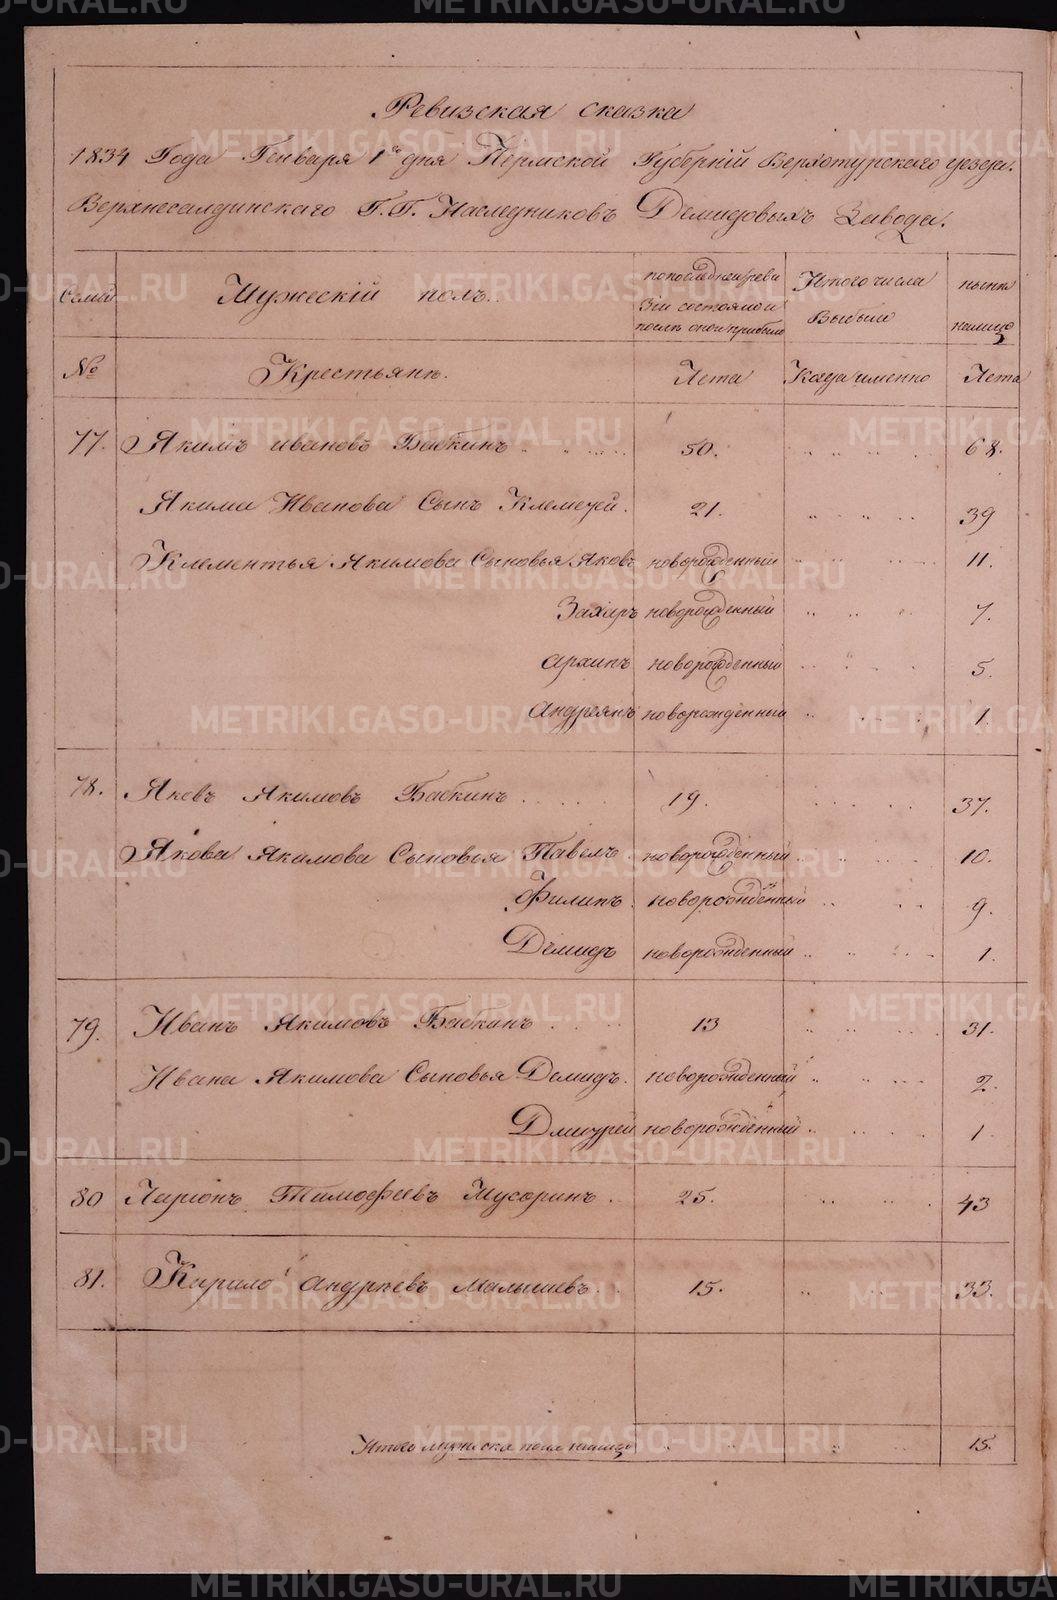 Ревизская сказка
1834 Года Генваря 1го дня Пермской Губерніи Верхотурского уезда.
Верхнесалдинскаго Г.Г. Наследниковъ Демидовыхъ Завода.
Семьи Мужескій полъ. по последней реви Изтого числа ныне
зіи состояло и Выбыли налицо
после оной прибыло
№ Крестьяне. Лета Когда именно Лета
77. Якимъ Ивановъ Бабкинъ 50. 68.
Якима Иванова Сынъ Клементей. 21. 39
Клементья Якимова Сыновья Яковъ новорожденный 11.
Захаръ новорожденный 7.
Архипъ новорожденный 5.
Андреянъ новорожденный 1.
78. Яковъ Якимовъ Бабкинъ 19. 37.
Якова Якимова Сыновья Павелъ новорожденный 10.
Филипъ новорожденный 9.
Демидъ новорожденный 1.
79. Иванъ Якимовъ Бабкинъ 13 31.
Ивана Якимова Сыновья Демидъ. новорожденный 2.
Дмитрей новорожденный 1.
80 Ларіонъ Тимофеевъ Мусоринъ. 25. 43
81. Кирило Андреевъ Малышевъ. 15. 33.
Итого мужеска пола налицо 15.
METRIKI.GASO-URAL.RU